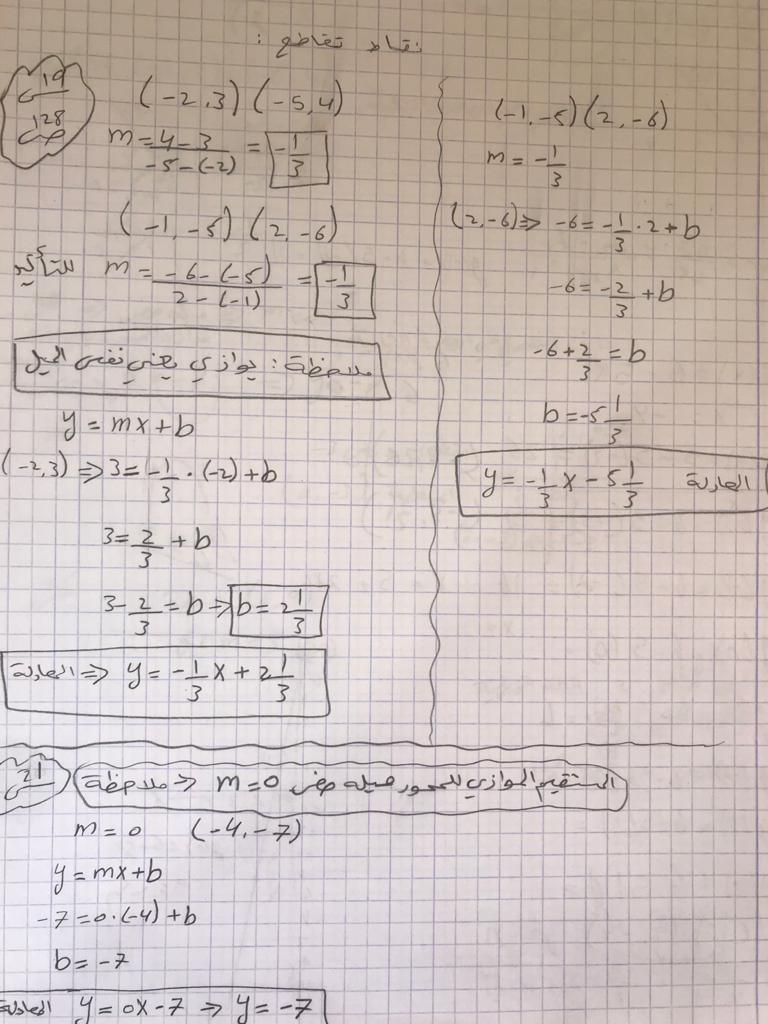 نقاط تقاطع :
س 19
ص 128
(-2,3) (-5,4)
m = 4-3 / -5-(-2) = -1/3
(-1,-5) (2,-6)
للتأكيد m = -6-(-5) / 2-(-1) = -1/3
ملاحظة : يوازي يعني نفس الميل
y = mx+b
(-2,3) ⇒ 3 = -1/3 · (-2)+b
3 = 2/3 + b
3 - 2/3 = b → b = 2 1/3
المعادلة ⇒ y = -1/3 x + 2 1/3
(-1,-5) (2,-6)
m = -1/3
(2,-6) ⇒ -6 = -1/3 · 2 + b
-6 = -2/3 + b
-6 + 2/3 = b
b = -5 1/3
y = -1/3 x - 5 1/3 المعادلة
س 21
ملاحظة ⇐ المستقيم الموازي للمحور ميله m = 0
m = 0 (-4,-7)
y = mx+b
-7 = 0·(-4)+b
b = -7
المعادلة y = 0x-7 ⇒ y = -7